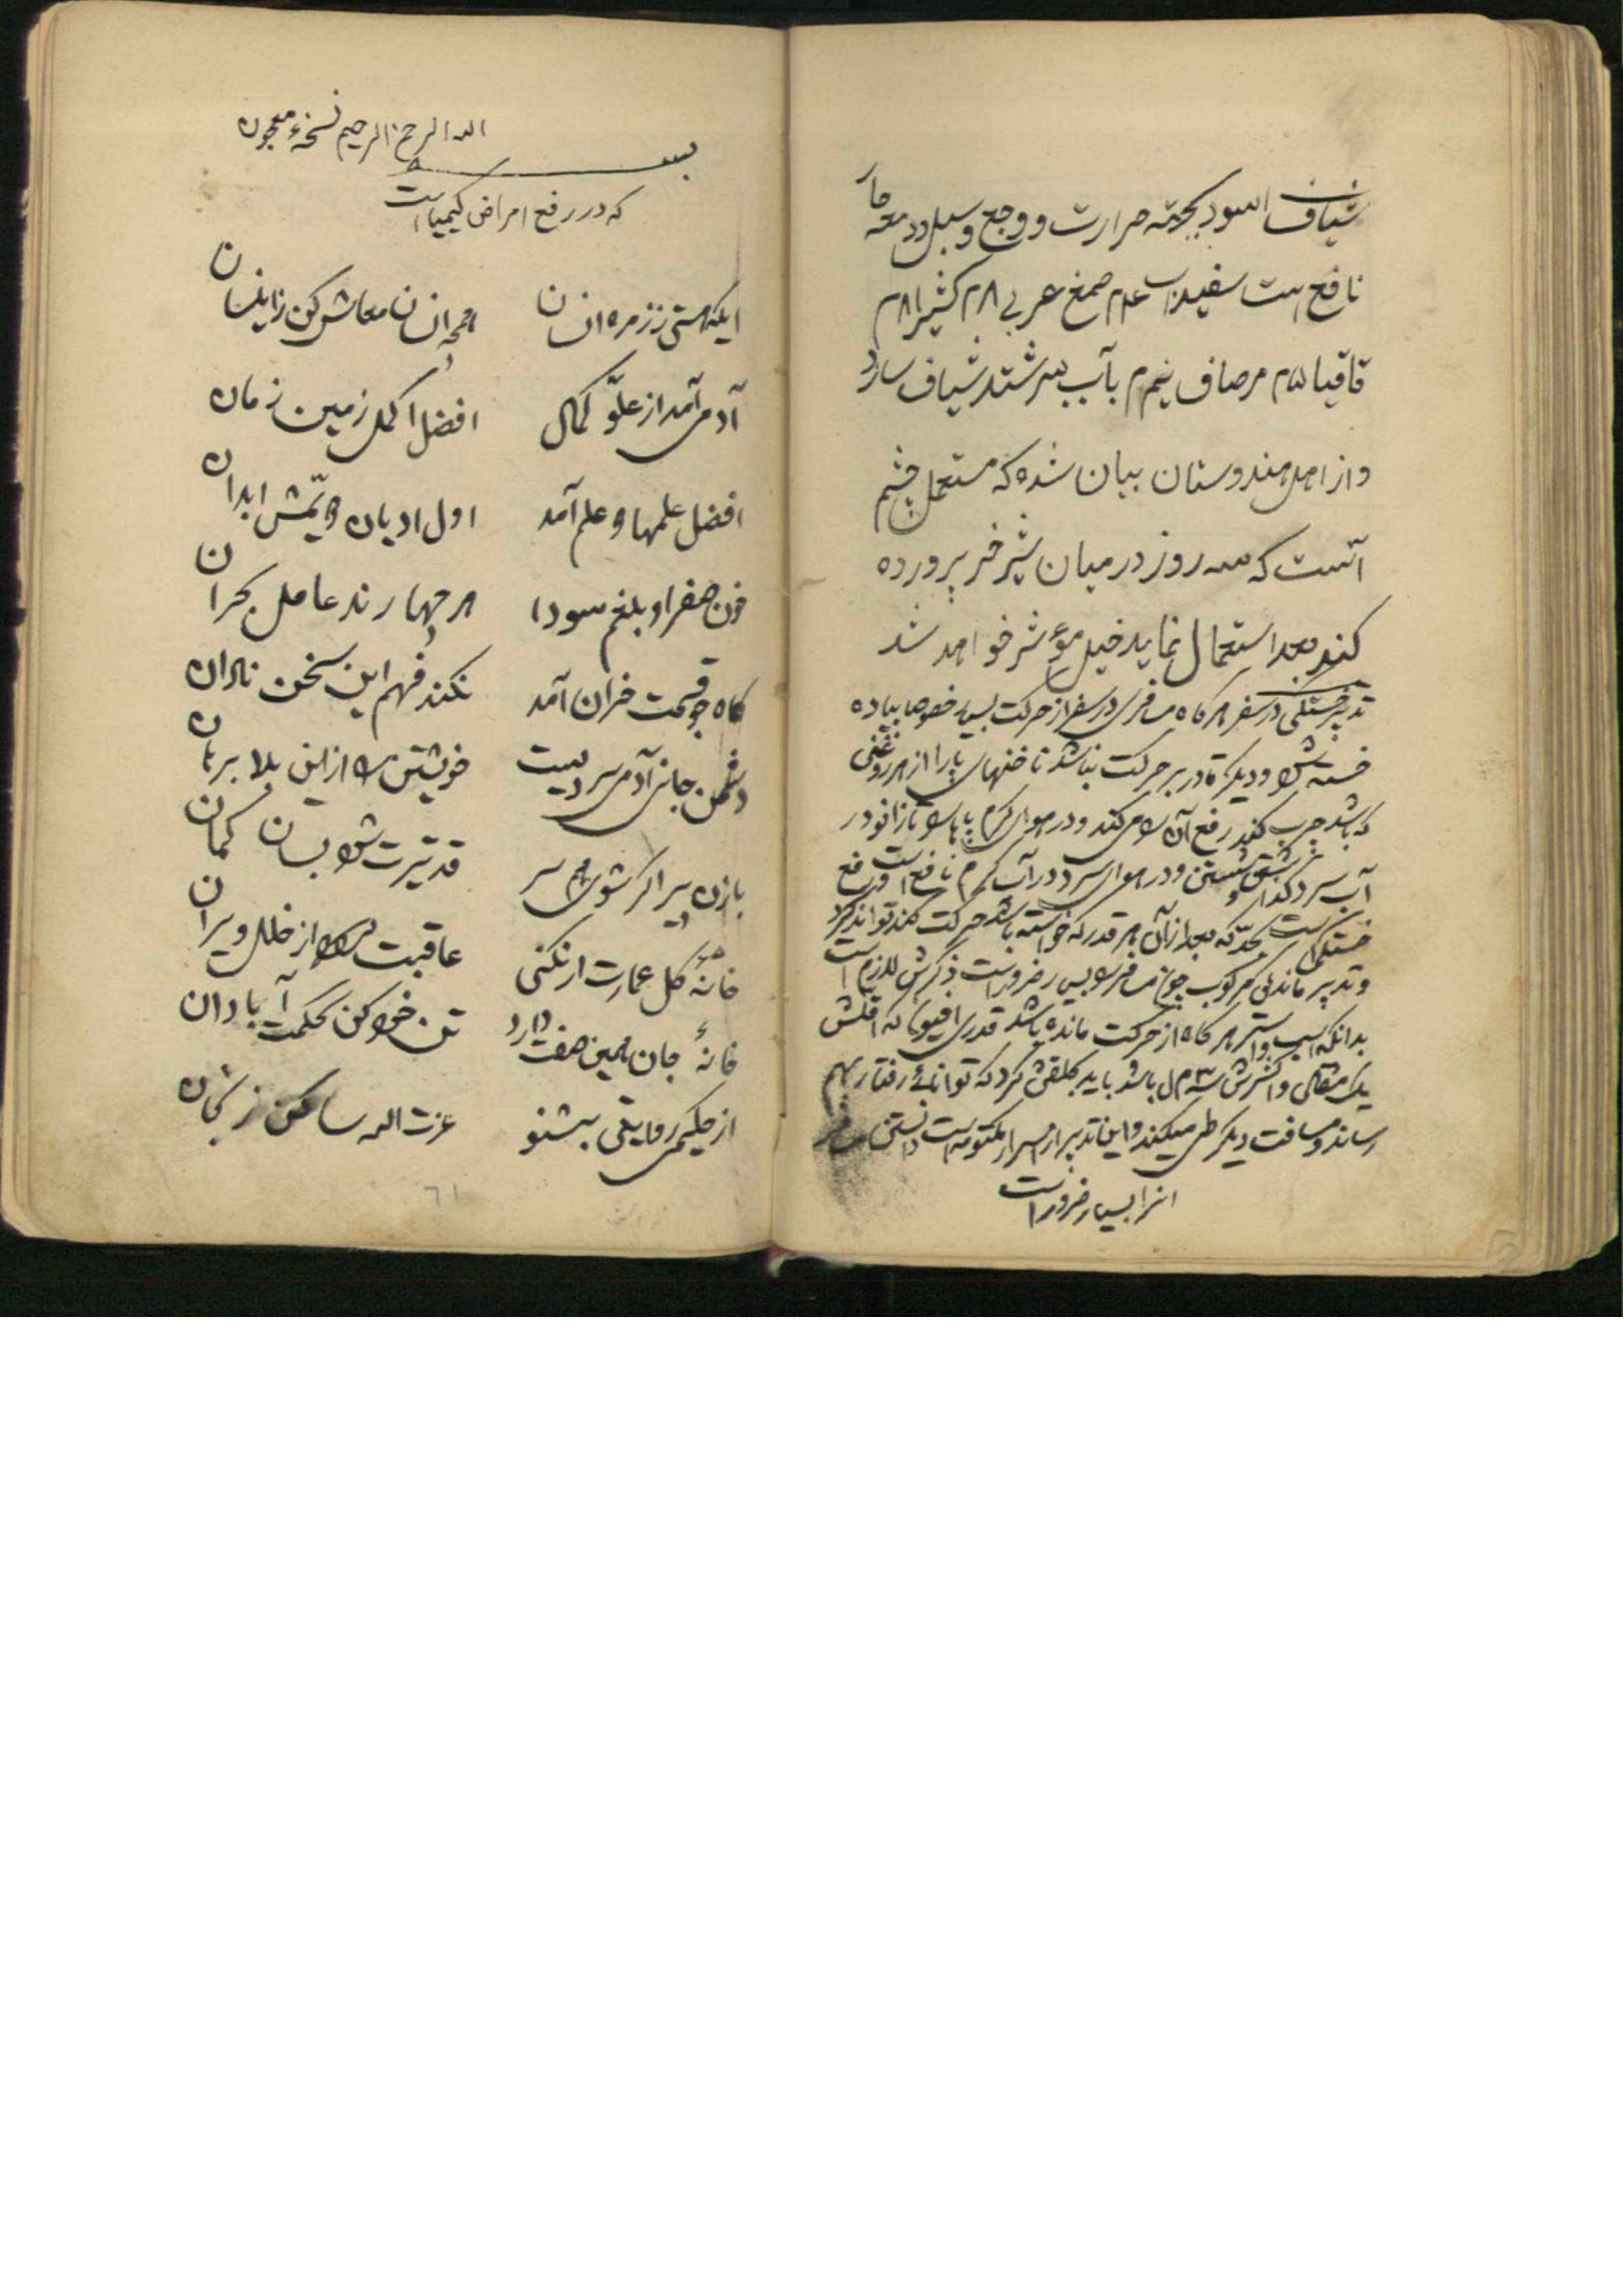 شیاف اسود بجهته حرارت و وجع و سبل و دمعه حار
نافع است سفیداب صمغ عربی ۸م کثیرا ۸م
قاقیا ۵م مرصاف نیم م بآب بسرشند شیاف سازد
و از اهل هندوستان بیان شده که مستعمل چشم
آنست که سه روز در میان شیر خر پرورده
کنند بعد استعمال نماید خیلی مؤثر خواهد شد
تدبیر خستگی در سفر هرکاه مسافری در سفر از حرکت بسیار خصوصا پیاده
خسته شود و دیگر قادر بر حرکت نباشد ناخنهای پا را از هر روغنی
که باشد چرب کنند رفع آن را می کند و در هوای گرم پاها را تا زانو در
آب سرد گذاشتن و شستن و در هوای سرد در آب گرم نافع است و رفع
خستگی است بحدّیکه بعد از آن هر قدر که خواسته باشد حرکت کند تواند کرد
و تدبیر ماندگی مرکوب چون مسافر را بسیار ضرور است ذکرش لازم است
بدانکه اسب و استر هرکاه از حرکت مانده باشد قدری افیون که اقلش
یک مثقال و اکثرش سه م ل باشد باید بحلقش کرد که توانائی رفتار بهم
رساند و مسافت دیگر طی میکند و این تدبیر از اسرار مکتومه است دانستن مسافر
انرا بسیار ضرور است
بسم الله الرحمن الرحیم نسخهٔ معجون
که در رفع امراض کیمیا است
ایکه هستی ز زمره انسان همچه انسان معاش کن زاینسان
آدمی آمد از علوّ کمال افضل اکمل زمین زمان
افضل علمها دو علم آمد اول ادیان دویّمش ابدان
خون صفرا و بلغم سودا هر چهارند عامل بحران
کاه جو قسمت خران آمد نکند فهم این سخن نادان
دشمن جان آدمی سردیست خویشتن را از این بلا برهان
با زن پیر اگر شوی همسر قد تیرت شود بسان کمان
خانهٔ گل عمارت ار نکنی عاقبت میشود از خلل ویران
خانهٔ جان همین صفت دارد تن خود کن بحکمت آبادان
از حکیمی روایتی بشنو عزت الله ساکن زنجان
۶۱